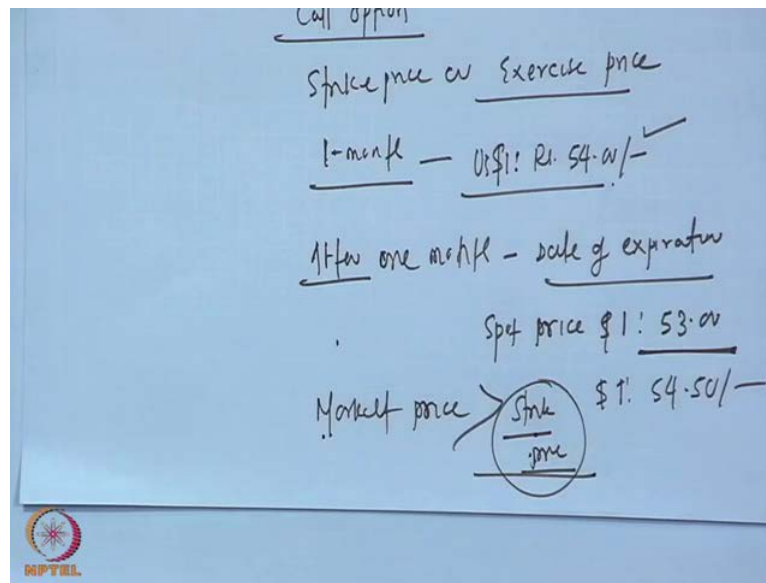 Call option
Strike price or Exercise price
1-month — US$1: Rs. 54.00/-
After one month - Date of expiration
Spot price $1: 53.00
$1: 54.50/-
Market price > Strike price
NPTEL